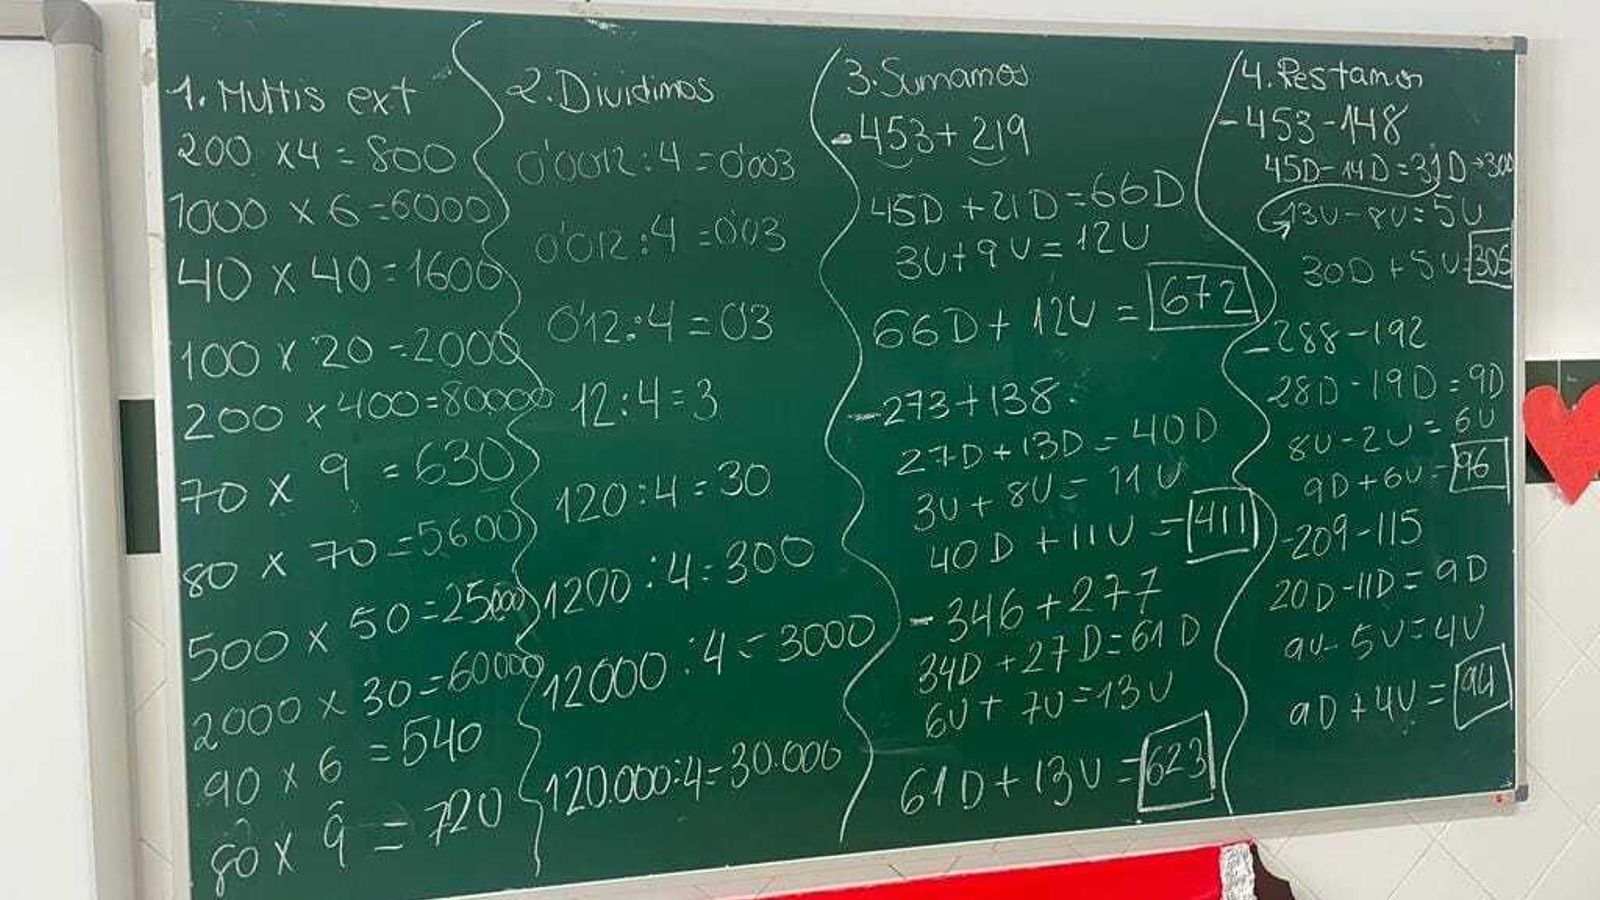 1. Multis ext
200 x 4 = 800
1000 x 6 = 6000
40 x 40 = 1600
100 x 20 = 2000
200 x 400 = 80000
70 x 9 = 630
80 x 70 = 5600
500 x 50 = 25000
2000 x 30 = 60000
90 x 6 = 540
80 x 9 = 720
2. Dividimos
0'0012 : 4 = 0'003
0'012 : 4 = 0'03
0'12 : 4 = 03
12 : 4 = 3
120 : 4 = 30
1200 : 4 = 300
12000 : 4 = 3000
120.000 : 4 = 30.000
3. Sumamos
- 453 + 219
45D + 21D = 66D
3U + 9U = 12U
66D + 12U = 672
- 273 + 138
27D + 13D = 40D
3U + 8U = 11U
40D + 11U = 411
- 346 + 277
34D + 27D = 61D
6U + 7U = 13U
61D + 13U = 623
4. Restamos
- 453 - 148
45D - 14D = 31D → 30D
13U - 8U = 5U
30D + 5U = 305
- 288 - 192
28D - 19D = 9D
8U - 2U = 6U
9D + 6U = 96
- 209 - 115
20D - 11D = 9D
9U - 5U = 4U
9D + 4U = 94